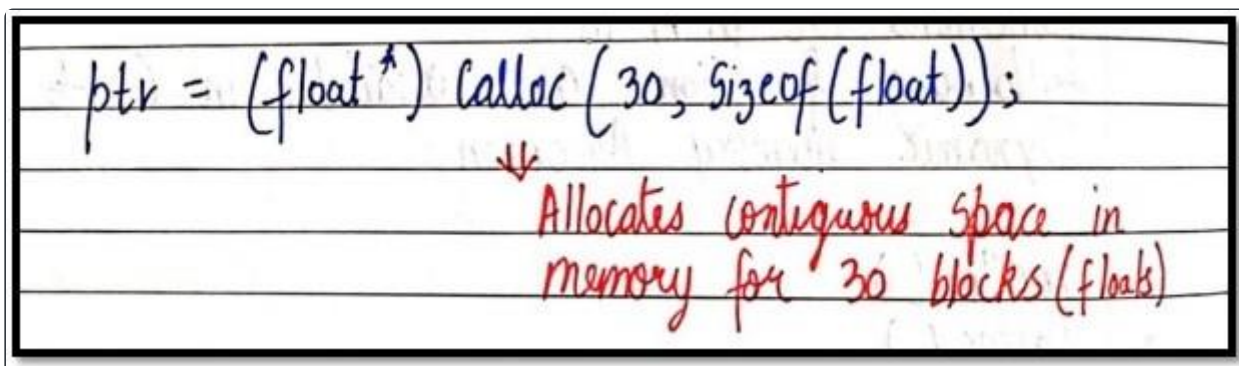 ptr = (float *) Calloc (30, Sizeof (float));
Allocates contiguous space in
memory for 30 blocks (floats)